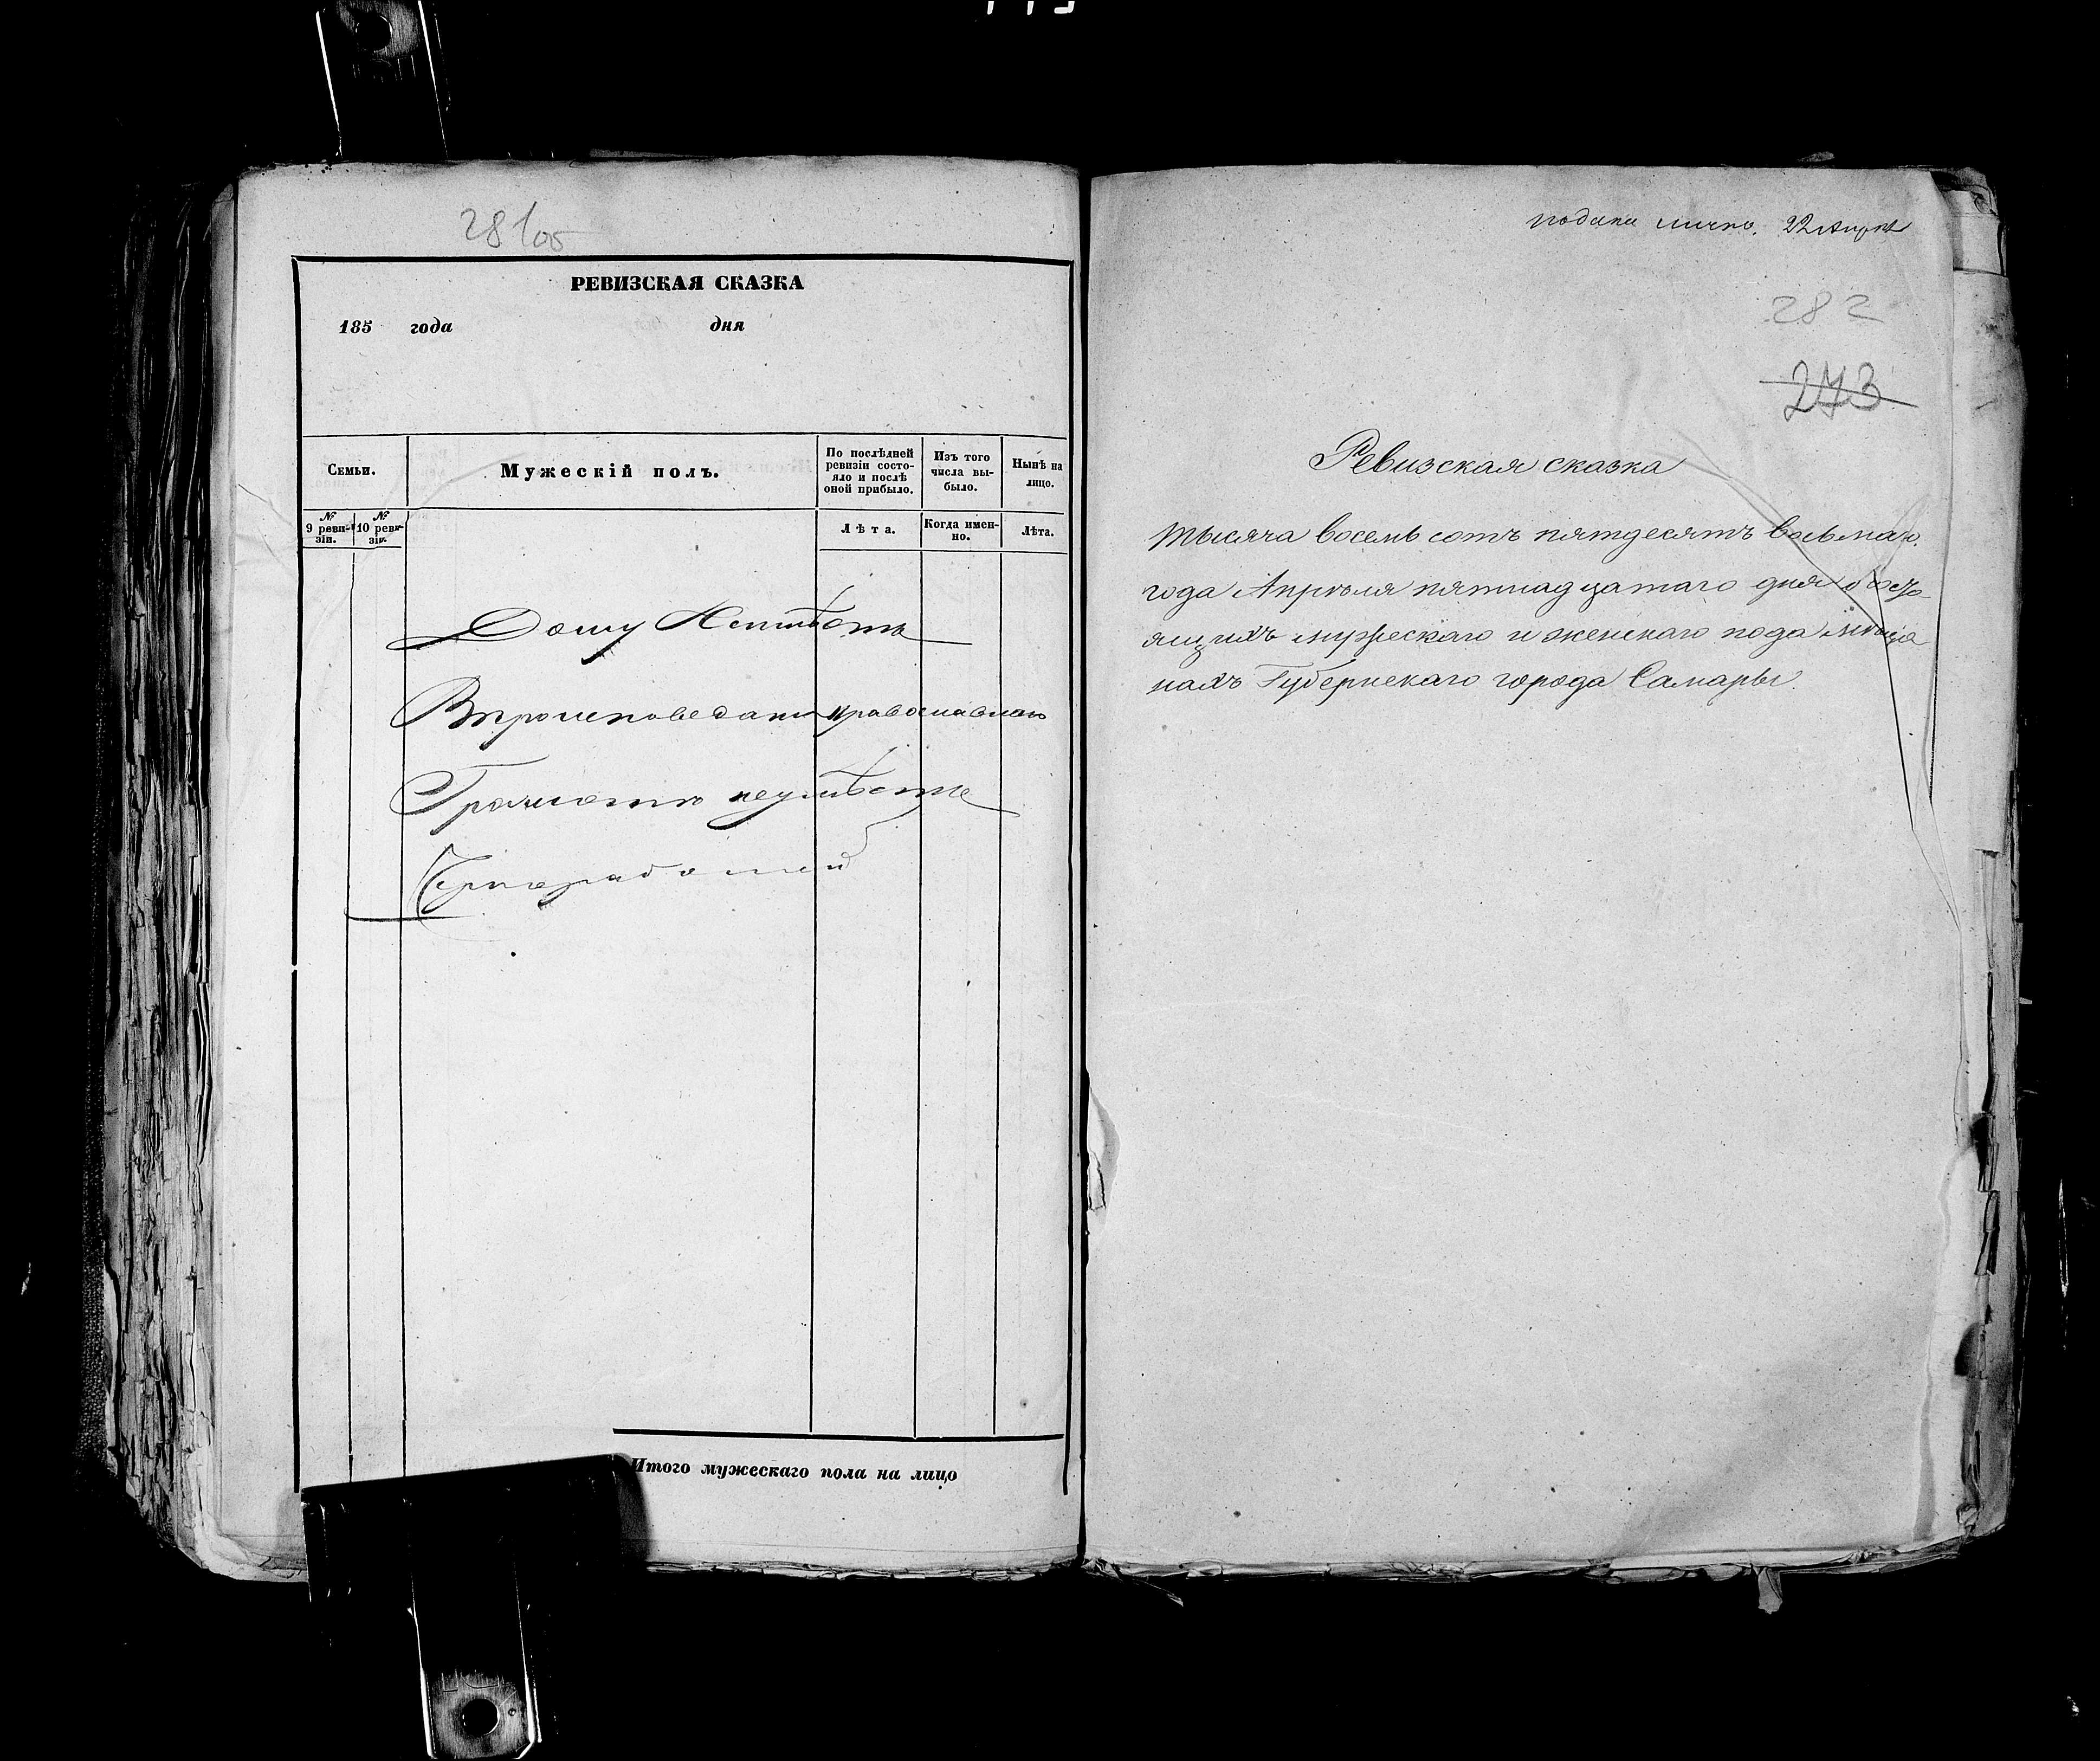 281 об
РЕВИЗСКАЯ СКАЗКА
185 года дня
Семьи.
Мужескій полъ.
По послѣдней ревизіи состо-
яло и послѣ
оной прибыло.
Изъ того
числа вы-
было.
Нынѣ на
лицо.
№ 9 реви-
зіи.
№ 10 реви-
зіи.
Лѣта.
Когда имен-
но.
Лѣта.
Дому Неимѣетъ
Вѣроисповеданія православнаго
Грамотѣ неумѣетъ
Чернорабочей
Итого мужескаго пола на лицо
подана лично. 22 Апреля
282
273
Ревизская сказка
Тысяча восемь сотъ пятдесятъ восьмаго
года Апрѣля пятнадцатаго дня о состо-
ящихъ мужескаго и женскаго пола мѣща
нахъ Губернскаго города Самары.